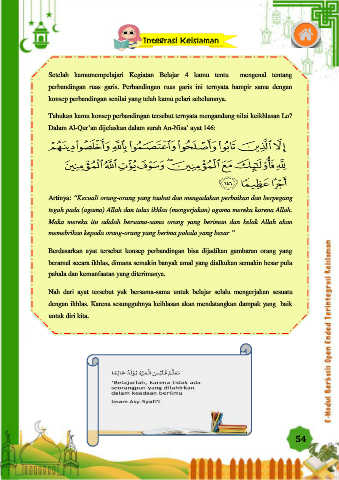 Integrasi Keislaman
Setelah kamumempelajari Kegiatan Belajar 4 kamu tentu mengenal tentang
perbandingan ruas garis. Perbandingan ruas garis ini ternyata hampir sama dengan
konsep perbandingan senilai yang telah kamu pelari sebelumnya.
Tahukan kamu konsep perbandingan tersebut ternyata mengandung nilai keikhlasan Lo?
Dalam Al-Qur'an dijelaskan dalam surah An-Nisa' ayat 146:
إِلَّا ٱلَّذِينَ تَابُوا۟ وَأَصْلَحُوا۟ وَٱعْتَصَمُوا۟ بِٱللَّهِ وَأَخْلَصُوا۟ دِينَهُمْ
لِلَّهِ فَأُو۟لَٰٓئِكَ مَعَ ٱلْمُؤْمِنِينَ ۖ وَسَوْفَ يُؤْتِ ٱللَّهُ ٱلْمُؤْمِنِينَ
أَجْرًا عَظِيمًا ١٤٦
Artinya: "Kecuali orang-orang yang taubat dan mengadakan perbaikan dan berpegang
teguh pada (agama) Allah dan tulus ikhlas (mengerjakan) agama mereka karena Allah.
Maka mereka itu adalah bersama-sama orang yang beriman dan kelak Allah akan
memebrikan kepada orang-orang yang berima pahala yang besar "
Berdasarkan ayat tersebut konsep perbandingan bisa dijadikan gambaran orang yang
beramal secara ikhlas, dimana semakin banyak amal yang dialkukan semakin besar pula
pahala dan kemanfaatan yang diterimanya.
Nah dari ayat tersebut yuk bersama-sama untuk belajar selalu mengerjakan sesuatu
dengan ikhlas. Karena sesungguhnya keihlasan akan mendatangkan dampak yang baik
untuk diri kita.
"Belajarlah, karena tidak ada
seorangpun yang dilahirkan
dalam keadaan berilmu
Imam Asy Syafi'i
E-Modul Berbasis Open Ended Terintegrasi Keislaman
54